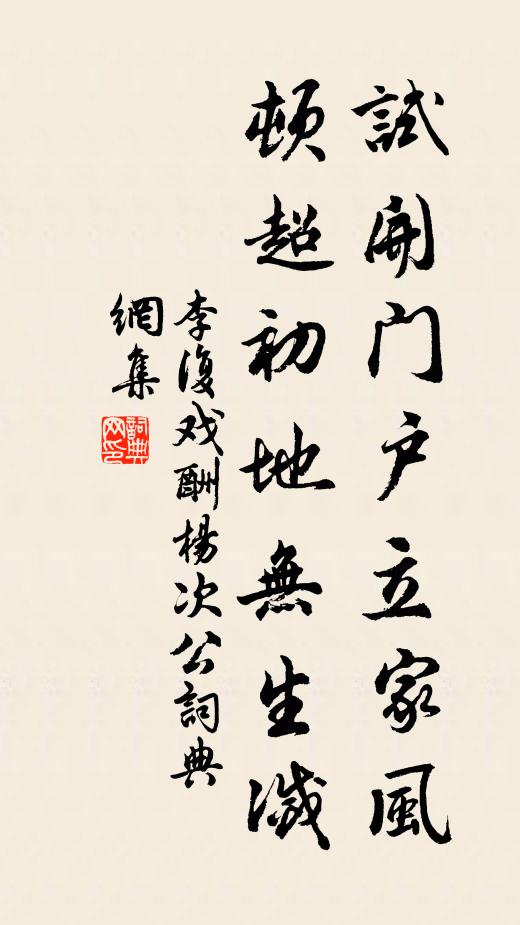 試開門户立家風
頓超初地無生滅
李復戏酬楊次公詞典
網集
詞典
网印